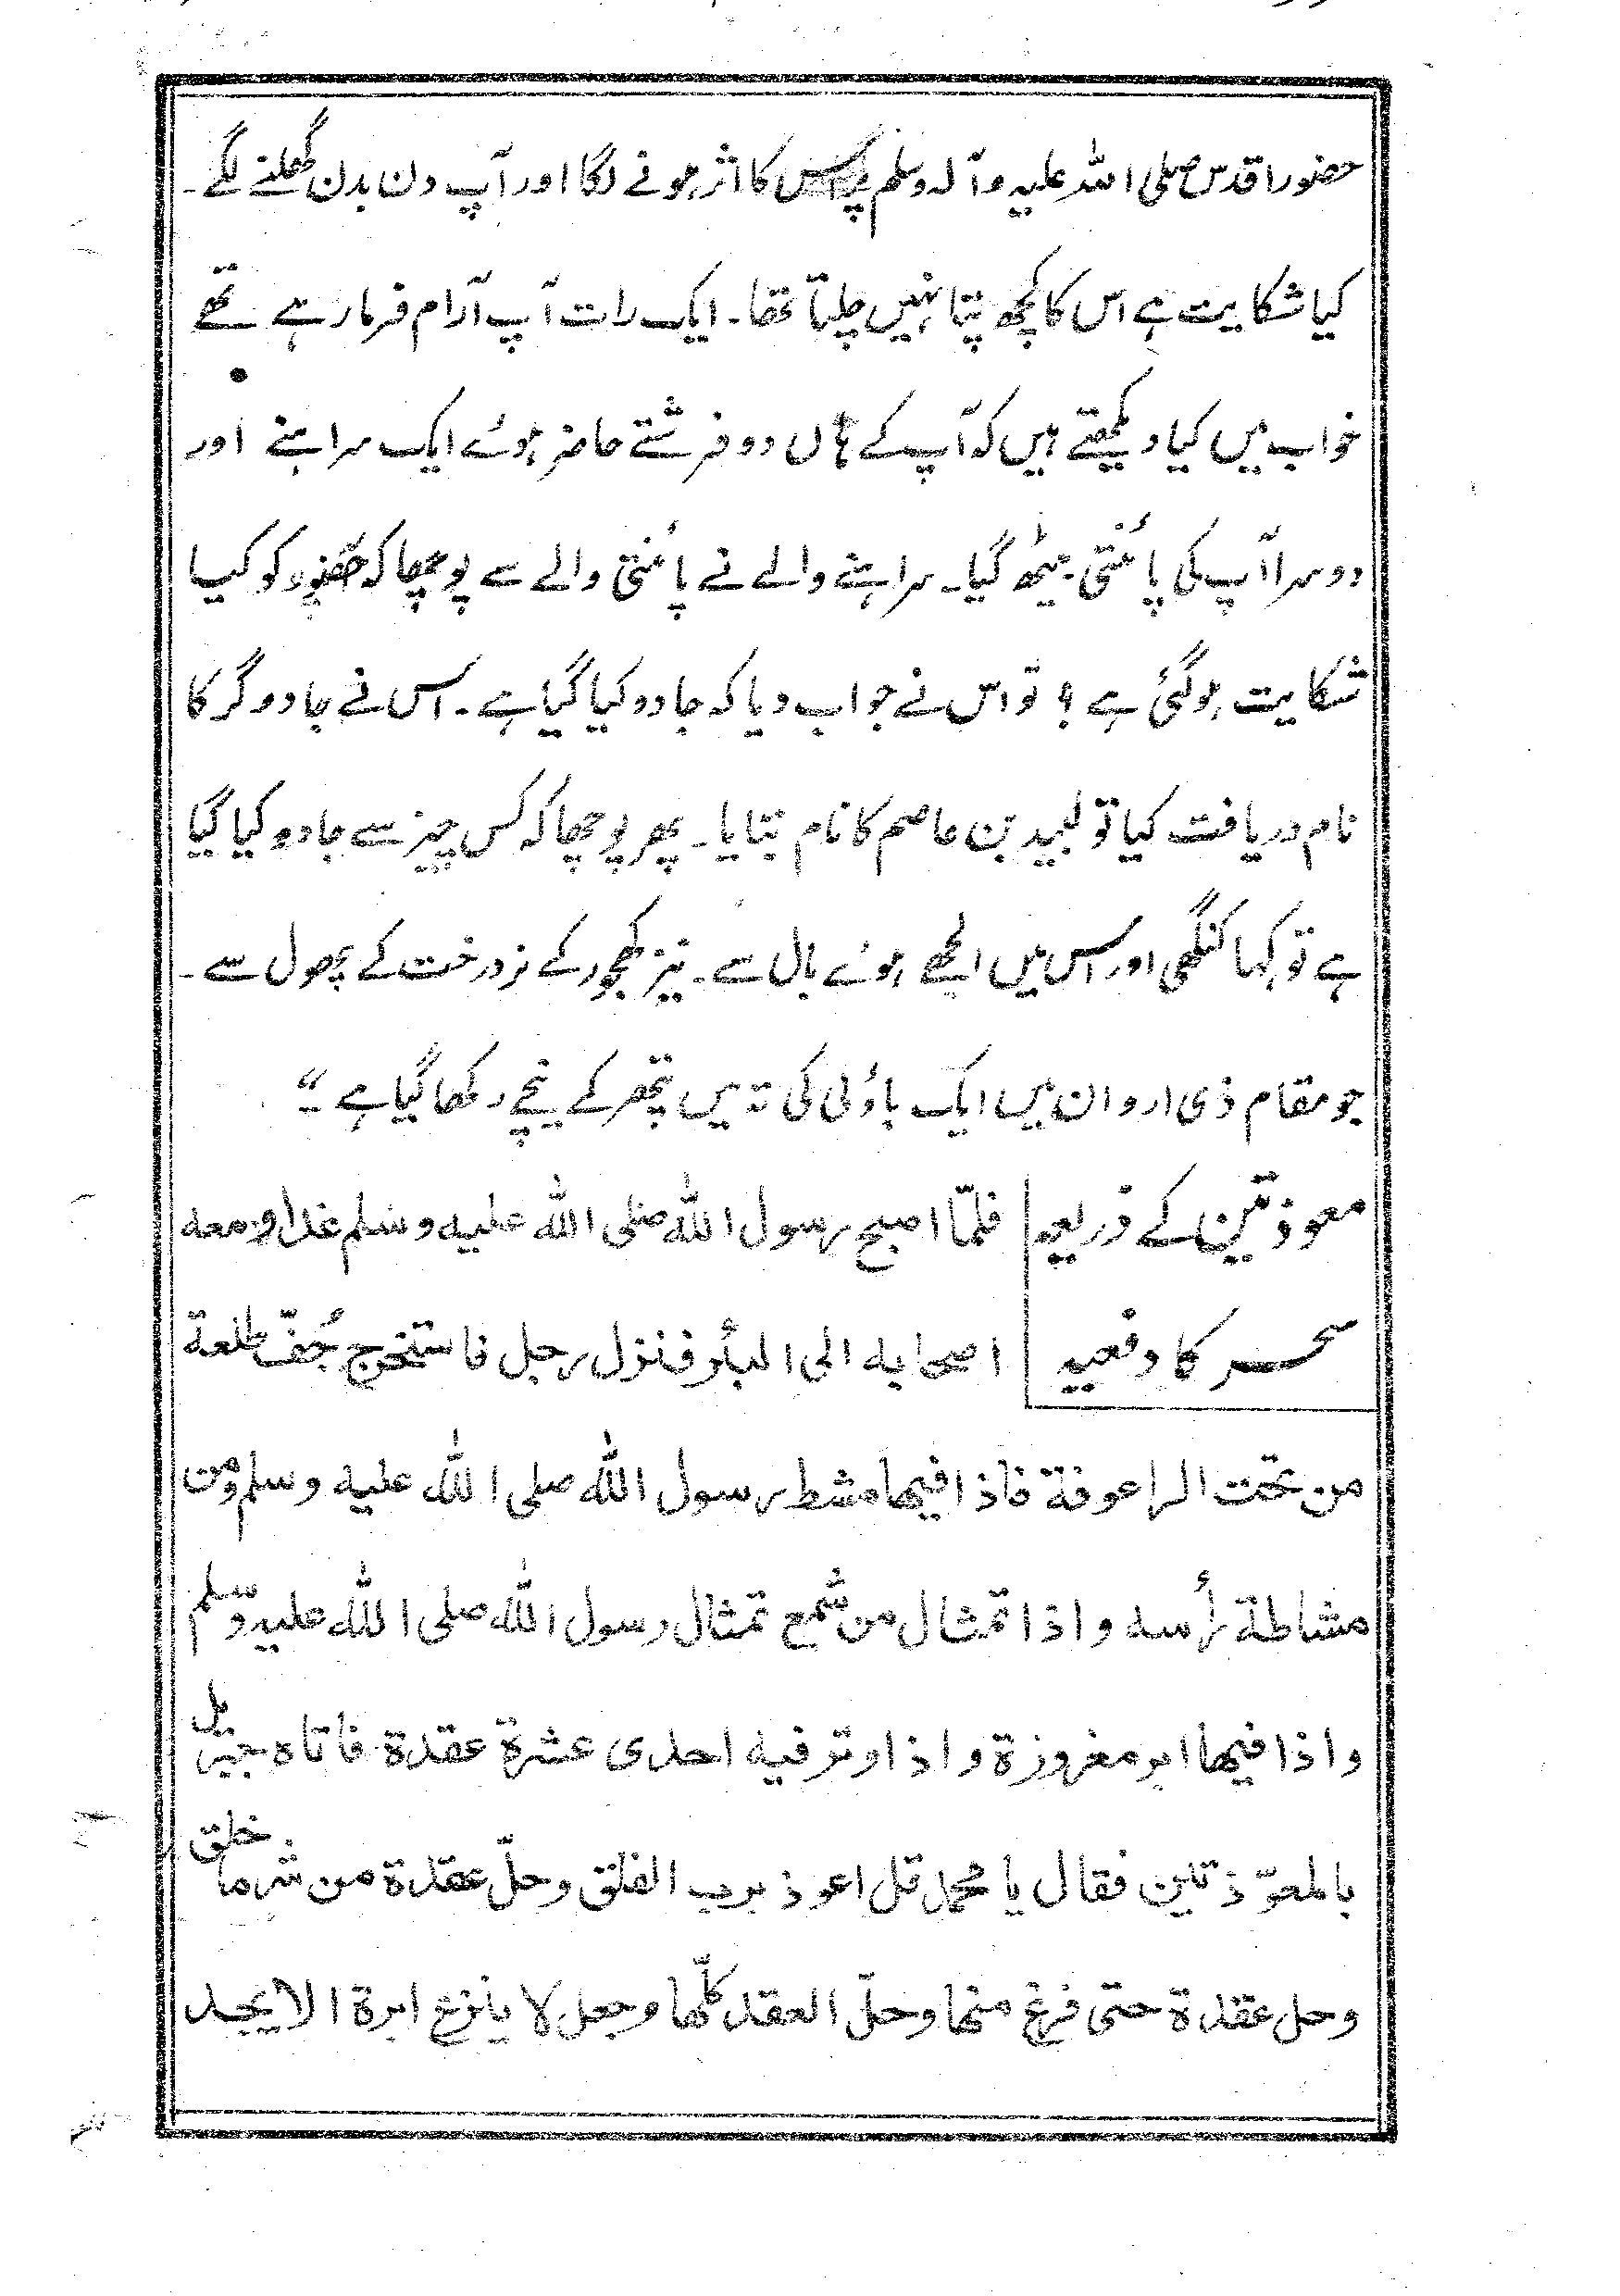 حضور اقدس صلی اللہ علیہ وآلہ وسلم پر اس کا اثر ہونے لگا اور آپ دن بدن گھلنے لگے۔
کیا شکایت ہے اس کا کچھ پتا نہیں چلتا تھا۔ ایک رات آپ آرام فرما رہے تھے
خواب میں کیا دیکھتے ہیں کہ آپ کے ہاں دو فرشتے حاضر ہوئے ایک سراہنے اور
دوسرا آپ کی پائنتی بیٹھ گیا۔ سراہنے والے نے پائنتی والے سے پوچھا کہ حضور کو کیا
شکایت ہوگئی ہے؟ تو اس نے جواب دیا کہ جادو کیا گیا ہے۔ اس نے جادوگر کا
نام دریافت کیا تو لبید بن عاصم کا نام بتایا۔ پھر پوچھا کہ کس چیز سے جادو کیا گیا
ہے تو کہا کنگھی اور اس میں الجھے ہوئے بال سے۔ نیز کھجور کے نر درخت کے پھول سے۔
جو مقام ذی اروان میں ایک باؤلی کی تہ میں پتھر کے نیچے رکھا گیا ہے۔“
معوذتین کے ذریعہ
سحر کا دفعیہ
فلمّا اصبح رسول اللہ صلی اللہ علیہ وسلم غدا ومعہ
اصحابہ الی البئر فنزل رجل فاستخرج جُفّ طلعة
من تحت الراعوفة فاذا فیھا مشط رسول اللہ صلی اللہ علیہ وسلم ومن
مشاطة رأسہ واذا تمثال من شمع تمثال رسول اللہ صلی اللہ علیہ وسلم
واذا فیھا ابر مغروزة واذا وتر فیہ احدی عشرة عقدة فاتاہ جبریل
بالمعوّذتین فقال یا محمد قل اعوذ برب الفلق وحلّ عقدة من شر ما خلق
وحل عقدة حتی فرغ منھا وحلّ العقد کلّھا وجعل لا ینزع ابرة الا یجد